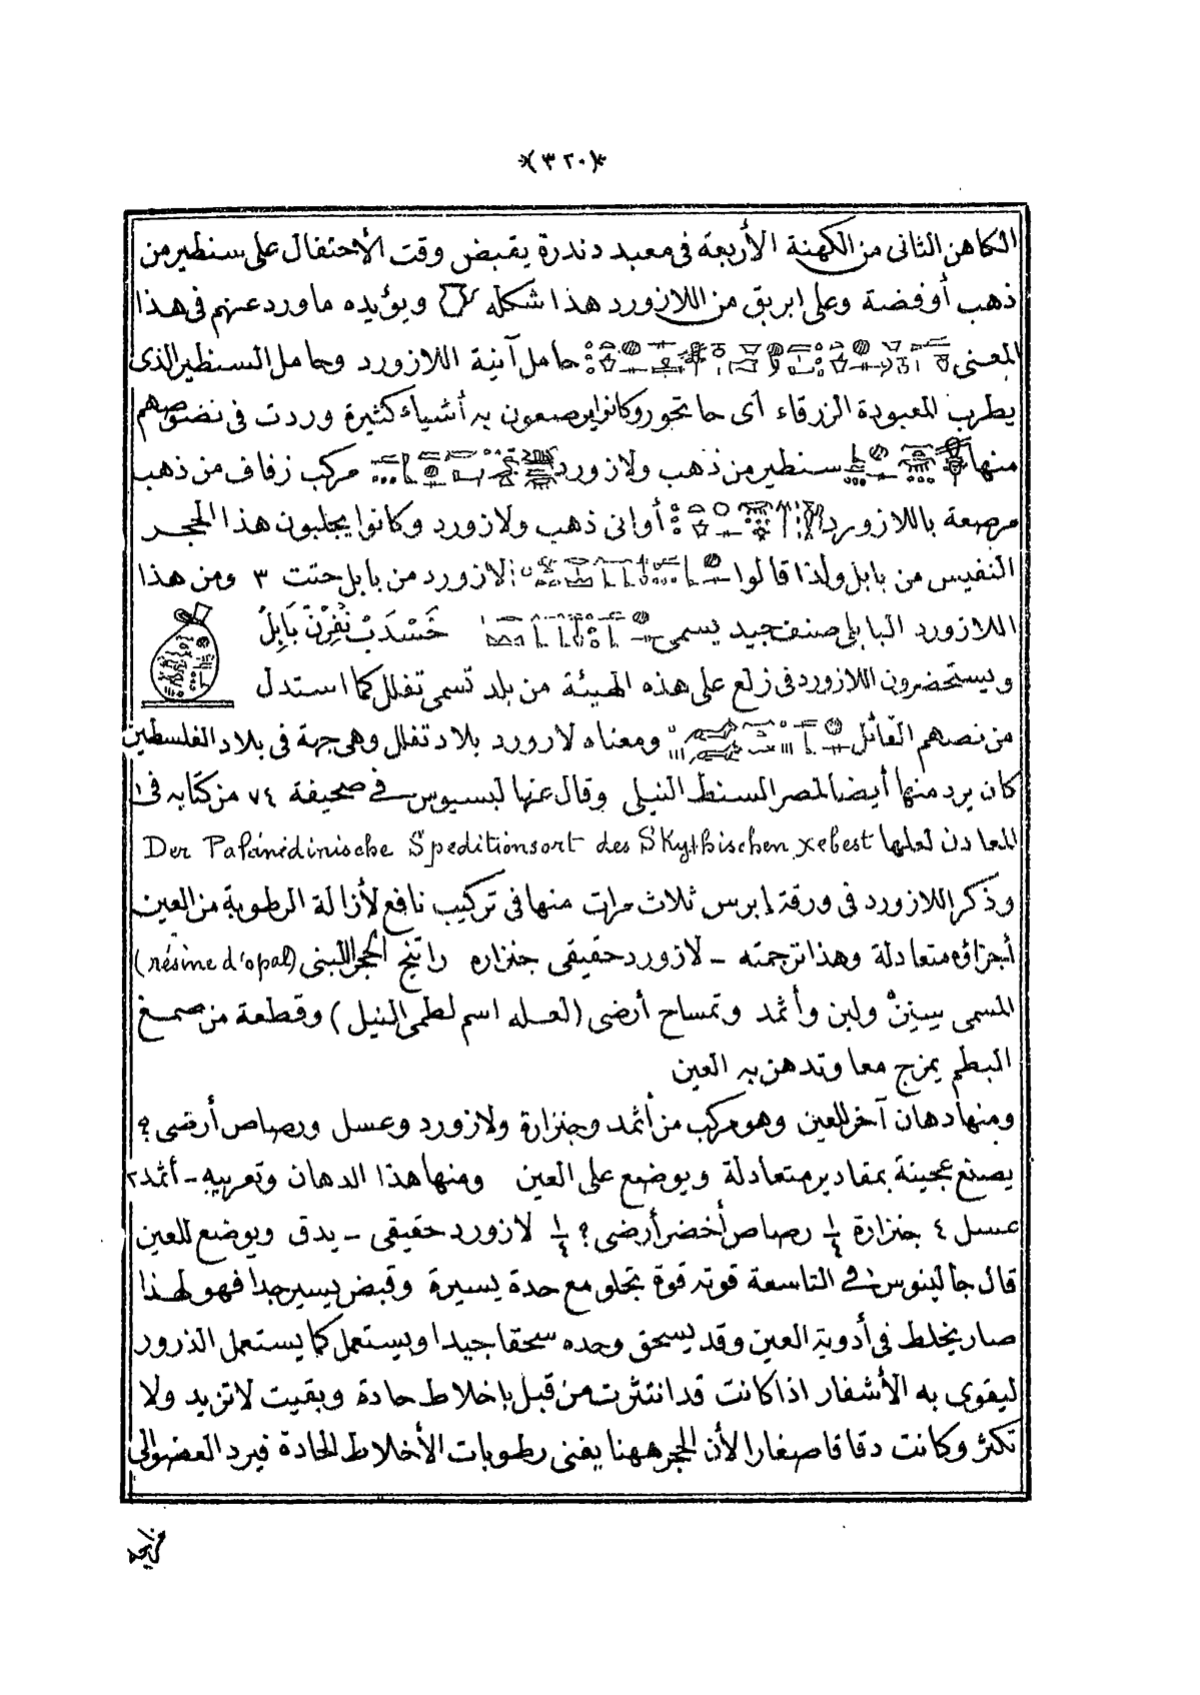 *(٣٢٠)*
الكاهن الثانى من الكهنة الأربعة فى معبد دندرة يقبض وقت الأحتفال على سنطير من
ذهب أو فضة وعلى ابريق من اللازورد هذا شكله ويؤيده ما ورد عنهم فى هذا
المعنى حامل آنية اللازورد وحامل السنطير الذى
يطرب المعبودة الزرقاء أى حاتحور وكانوا يرصعون به أشياء كثيرة وردت فى نصوصهم
منها سنطير من ذهب ولازورد مركب زفاف من ذهب
مرصعة باللازورد أوانى ذهب ولازورد وكانوا يجلبون هذا الحجر
النفيس من بابل ولذا قالوا لازورد من بابل حتت ٣ ومن هذا
اللازورد البابلى صنف جيد يسمى خَسْدَبْ نُفِرْنَ بَابِلُ
ويستحضرون اللازورد فى زلع على هذه الهيئة من بلد تسمى تفلل كما استدل
من نصهم القائل ومعناه لازورد بلاد تفلل وهى جهة فى بلاد الفلسطين
كان يرد منها أيضا لمصر السنط النيلى وقال عنها لبسيوس فى صحيفة ٧٤ من كتابه فى
المعادن لعلها Der Palänedinische Speditionsort des Skythischen xebest
وذكر اللازورد فى ورقة إبرس ثلاث مرات منها فى تركيب نافع لأزالة الرطوبة من العين
أجزاؤه متعادلة وهذا ترجمته - لازورد حقيقى جنزاره راتنج الحجر اللبنى (résine d'opal)
المسمى ولبن وأثمد وتمساح أرضى (لعله اسم لطمى النيل) وقطعة من صمغ
البطم يمزج معا وتدهن به العين
ومنها دهان آخر للعين وهو مركب من أثمد وجنزارة ولازورد وعسل ورصاص أرضى؟
يصنع عجينة بمقادير متعادلة ويوضع على العين ومنها هذا الدهان وتعريبه - أثمد ٢
عسل ٤ جنزارة ¼ رصاص أخضر أرضى؟ ¼ لازورد حقيقى - يدق ويوضع للعين
قال جالينوس فى التاسعة قوته قوة تجلو مع حدة يسيرة وقبض يسير جدا فهو لهذا
صار يخلط فى أدوية العين وقد يسحق وحده سحقا جيدا ويستعمل كما يستعمل الذرور
ليقوى به الأشفار اذا كانت قد انتثرت من قبل باخلاط حادة وبقيت لا تزيد ولا
تكثر وكانت دقاقا صغارا لأن الحجر ههنا يفنى رطوبات الأخلاط الحادة فيرد العضو الى